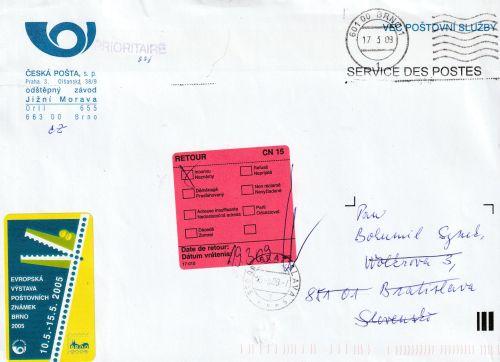 PRIORITAIRE
ČESKÁ POŠTA, s. p.
Praha, 3, Olšanská 38/9
odštěpný závod
Jižní Morava
Orlí 655
663 00 Brno
CZ
601 00 BRNO 1
17. 3. 09
VEC POŠTOVNÍ SLUŽBY
SERVICE DES POSTES
RETOUR CN 15
Inconnu
Neznámy
Refusé
Neprijaté
Déménagé
Presťahovaný
Non réclamé
Nevyžiadané
Adresse insuffisante
Nedostatočná adresa
Parti
Odcestoval
Décédé
Zomrel
Date de retour:
Dátum vrátenia:
Pan
Bohumil
Wolkrova 3,
851 01 Bratislava
Slovensko
EVROPSKÁ
VÝSTAVA
POŠTOVNÍCH
ZNÁMEK
BRNO
2005
10.5.-15.5. 2005